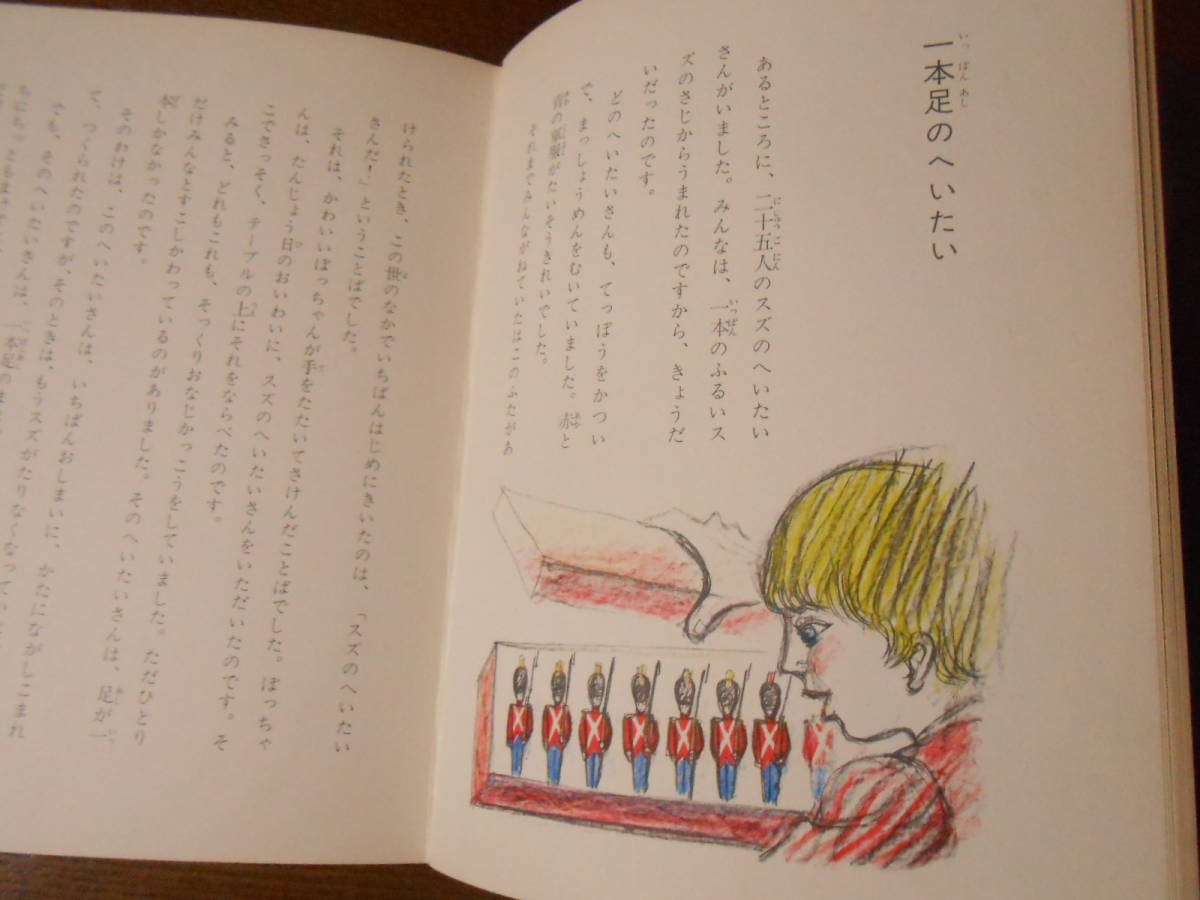 一本足のへいたい
あるところに、二十五人のスズのへいたい
さんがいました。みんなは、一本のふるいス
ズのさじからうまれたのですから、きょうだ
いだったのです。
どのへいたいさんも、てっぽうをかつい
で、まっしょうめんをむいていました。赤と
青の軍服がたいそうきれいでした。
それまでみんながねていたはこのふたがあ
けられたとき、この世のなかでいちばんはじめにきいたのは、「スズのへいたい
さんだ！」ということばでした。
それは、かわいいぼっちゃんが手をたたいてさけんだことばでした。ぼっちゃ
んは、たんじょう日のおいわいに、スズのへいたいさんをいただいたのです。そ
こでさっそく、テーブルの上にそれをならべたのです。
みると、どれもこれも、そっくりおなじかっこうをしていました。ただひとり
だけみんなとすこしかわっているのがありました。そのへいたいさんは、足が一
本しかなかったのです。
そのわけは、このへいたいさんは、いちばんおしまいに、かたにながしこまれ
て、つくられたのですが、そのときは、もうスズがたりなくなってい
でも、そのへいたいさんは、一本足の